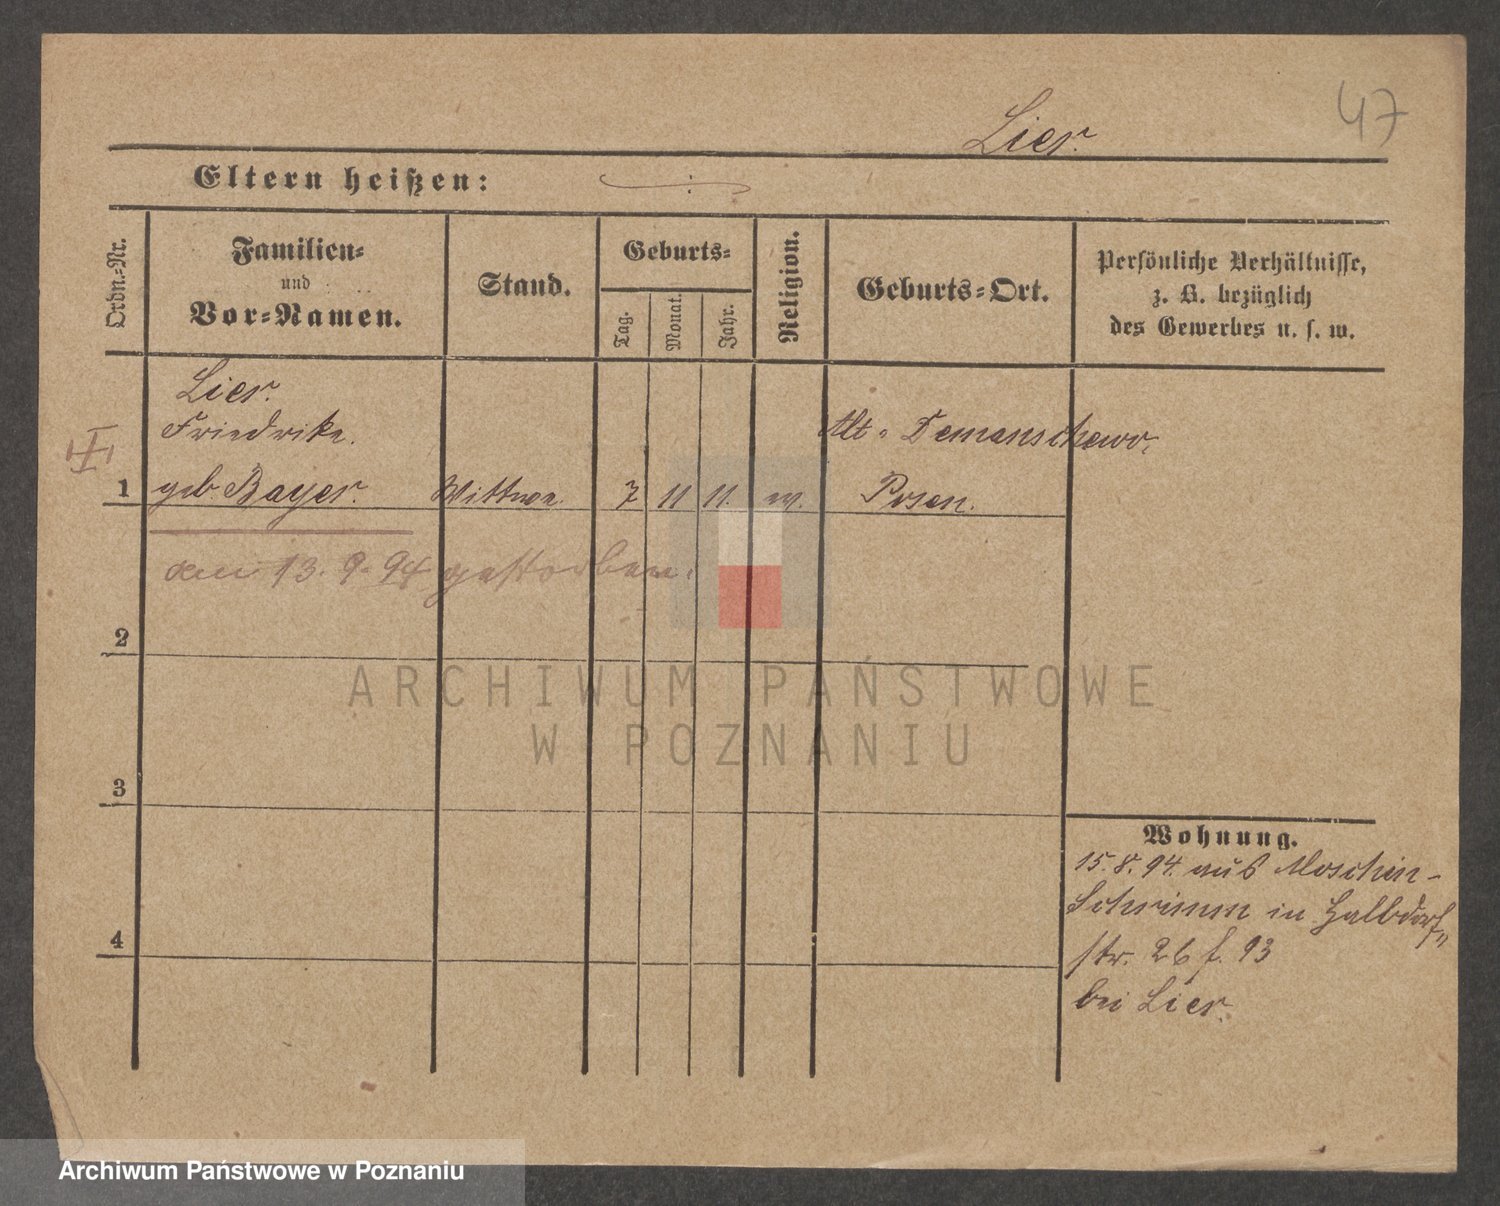 47
Lier.
Eltern heißen:
Ordn.-Nr.
Familien-
und
Vor-Namen.
Stand.
Geburts-
Tag.
Monat.
Jahr.
Religion.
Geburts-Ort.
Persönliche Verhältnisse,
z. B. bezüglich
des Gewerbes u. s. w.
Lier.
Friedrike.
1 geb Bayer. Wittwe. 7 11 11.
Alt-Demanschewo,
Posen.
am 13.9.94 gestorben.
2
3
4
Wohnung.
15.8.94. aus Moschin-
Schrimm in Halbdorf„
str. 26 f. 93
bei Lier.
ARCHIWUM PAŃSTWOWE
W POZNANIU
Archiwum Państwowe w Poznaniu